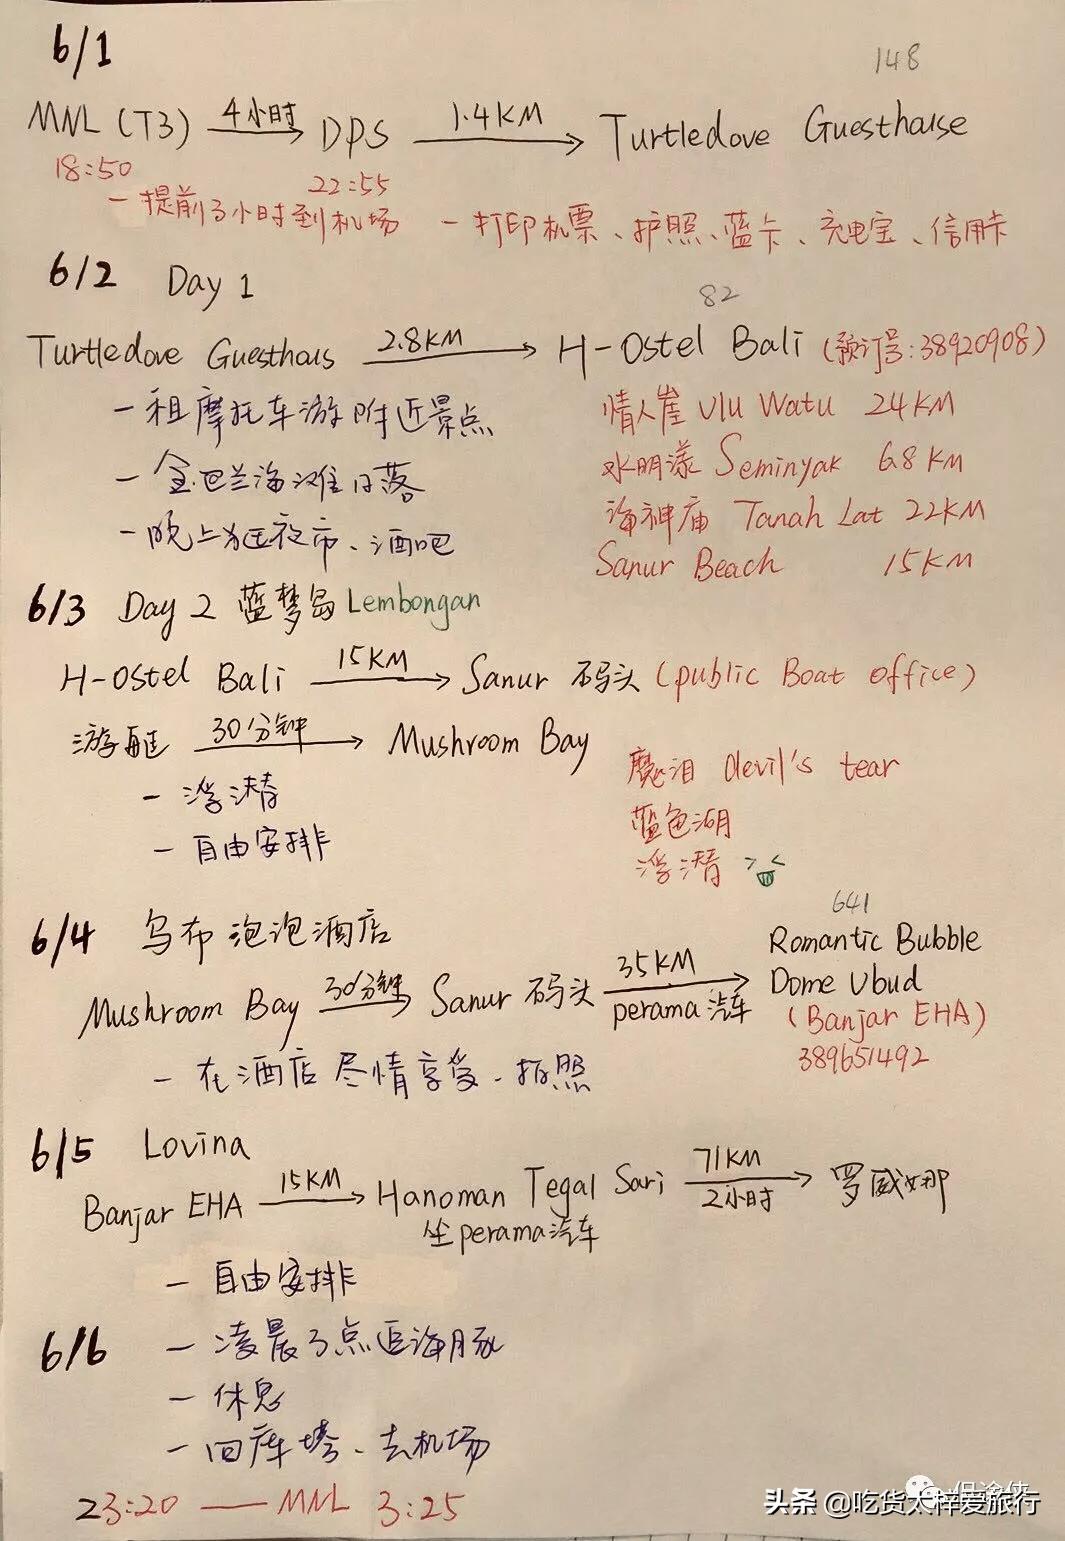 6/1
148
MNL (T3) 4小时 DPS 1.4KM Turtledove Guesthouse
18:50 22:55
- 提前3小时到机场 - 打印机票、护照、蓝卡、充电宝、信用卡
6/2 Day 1
82
Turtledove Guesthous 2.8KM H-Ostel Bali (预订号:38920908)
- 租摩托车游附近景点
- 金巴兰海滩日落
- 晚上逛夜市、酒吧
情人崖 Ulu Watu 24KM
水明漾 Seminyak 6.8KM
海神庙 Tanah Lat 22KM
Sanur Beach 15KM
6/3 Day 2 蓝梦岛 Lembongan
H-Ostel Bali 15KM Sanur 码头 (public Boat office)
游艇 30分钟 Mushroom Bay
- 浮潜
- 自由安排
魔泪 devil's tear
蓝色湖
浮潜
6/4 乌布泡泡酒店
641
Mushroom Bay 30分钟 Sanur 码头 35KM perama汽车 Romantic Bubble
Dome Ubud
(Banjar EHA)
389651492
- 在酒店尽情享受、拍照
6/5 Lovina
Banjar EHA 15KM Hanoman Tegal Sari 71KM 2小时 罗威娜
坐perama汽车
- 自由安排
6/6 - 凌晨3点追海豚
- 休息
- 回库塔、去机场
23:20 — MNL 3:25
头条 @吃货太梓爱旅行